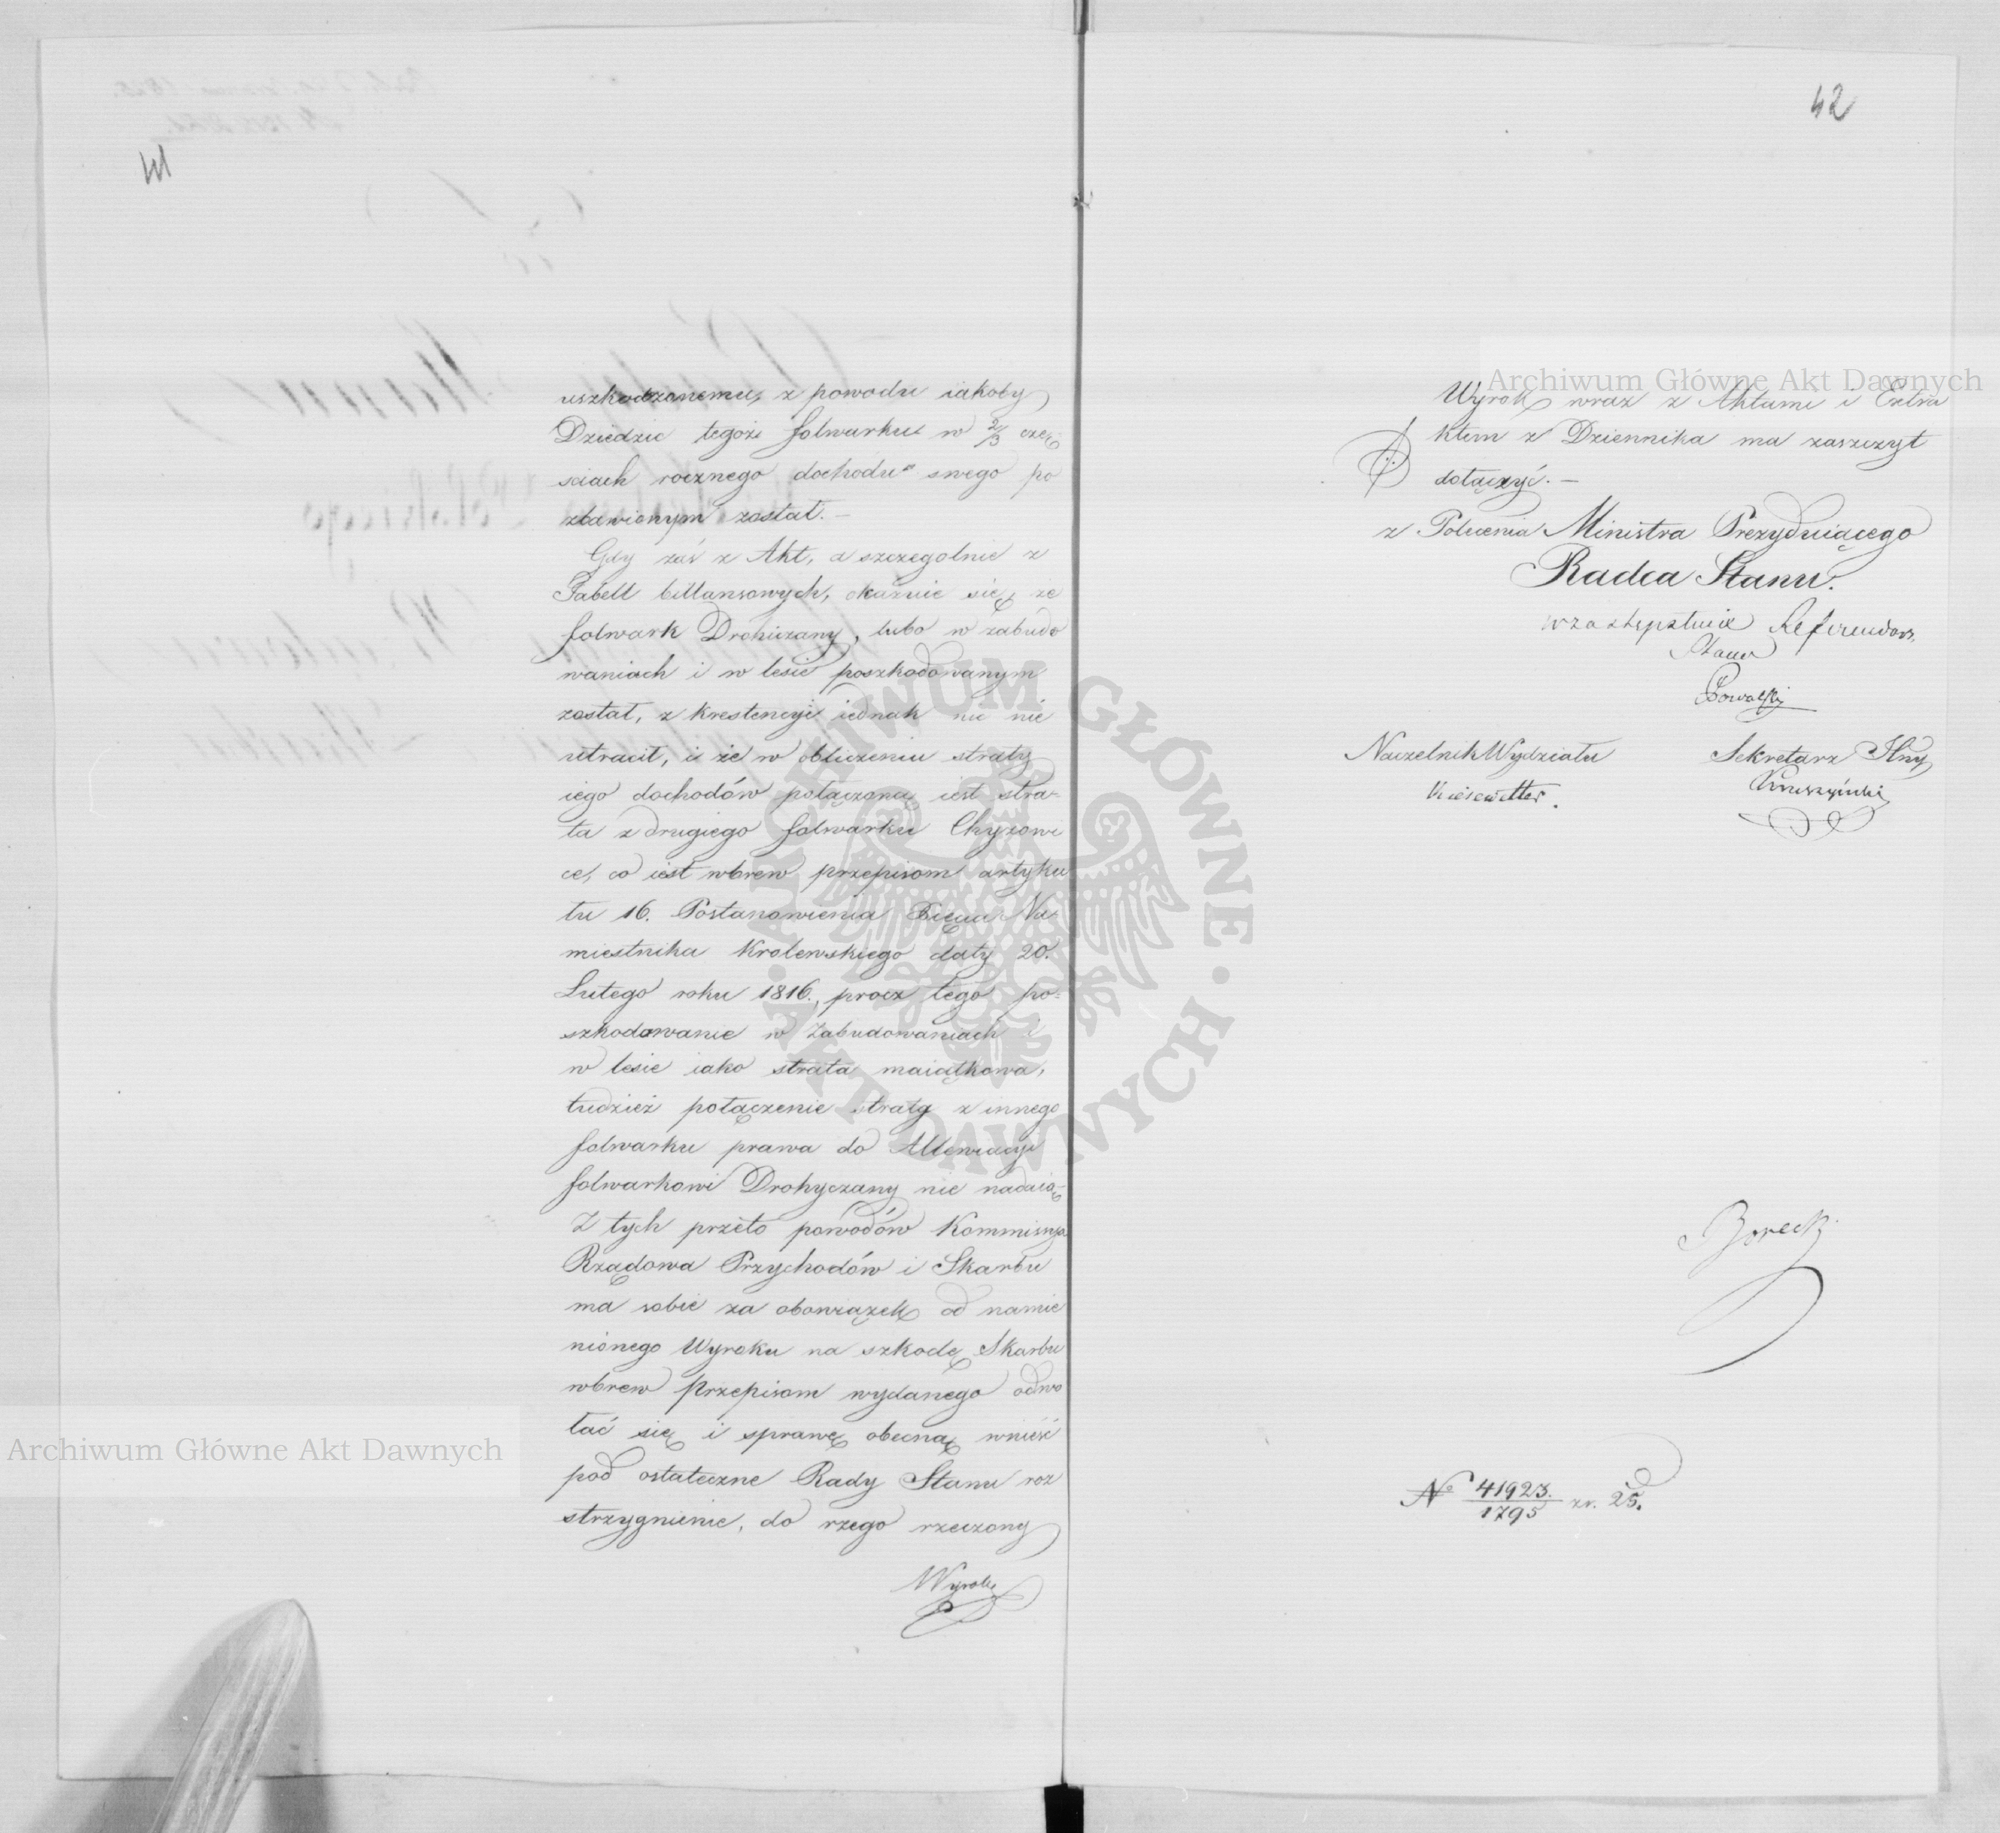 uszkodzonemu, z powodu iakoby
Dziedzic tegoż folwarku w 2/3 czę
sciach rocznego dochodu swego po
zbawionym został.—
Gdy zaś z Akt, a szczegolnie z
Tabell billansowych, okazuie się, że
folwark Drohiczany, lubo w zabudo
waniach i w lesie poszkodowanym
został, z krestencyi iednak nic nie
utracił, i że w obliczeniu straty
iego dochodów połączoną iest stra-
ta z drugiego folwarku Chyżowi
ce, co iest wbrew przepisom artyku
łu 16. Postanowienia Xięcia Na-
miestnika Krolewskiego daty 20.
Lutego roku 1816., procz tego po-
szkodowanie w Zabudowaniach i
w lesie iako strata maiątkowa,
tudzież połączenie straty z innego
folwarku prawa do Allewiacyi
folwarkowi Drohyczany nie nadaią.
Z tych przeto powodów Kommissya
Rządowa Przychodów i Skarbu
ma sobie za obowiązek od namie
nionego Wyroku na szkodę Skarbu
wbrew Przepisom wydanego odwo
łać się i sprawę obecną wnieść
pod ostateczne Rady Stanu roz
strzygnienie, do czego rzeczony
Wyrok
42
Wyrok wraz z Aktami i Extra
ktem z Dziennika ma zaszczyt
dołączyć.—
z Polecenia Ministra Prezyduiącego
Radca Stanu.
w zastępstwie Referendarz
Stanu
Kowalski
Naczelnik Wydziału
Kiesewetter.
Sekretarz Jlny
Kruszyński
Borecki
No 41923./1795 zr. 25.
Archiwum Główne Akt Dawnych
Archiwum Główne Akt Dawnych
ARCHIWUM GŁÓWNE · AKT DAWNYCH ·